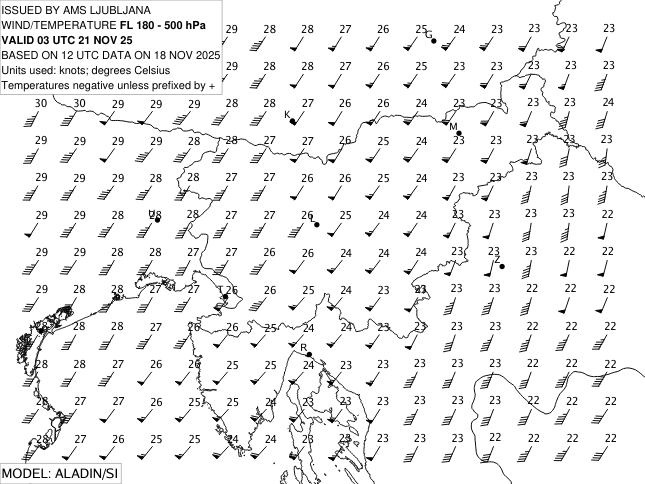 ISSUED BY AMS LJUBLJANA
WIND/TEMPERATURE FL 180 - 500 hPa
VALID 03 UTC 21 NOV 25
BASED ON 12 UTC DATA ON 18 NOV 2025
Units used: knots; degrees Celsius
Temperatures negative unless prefixed by +
29 28 27 26 26 25 24 24 23 23 23
G
29 28 28 27 26 25 24 23 23 23 23
30 30 29 29 28 28 27 26 26 24 23 23 23 23 24
K
M
29 29 29 28 28 28 27 26 25 24 23 23 23 23 23
29 29 29 28 28 27 26 26 25 24 23 23 23 23 22
29 29 28 28 28 27 27 26 25 24 24 23 23 23 22
U
L
29 29 28 28 27 27 26 26 24 24 24 23 23 22 22
Z
29 28 28 27 27 26 26 25 24 23 23 23 23 22 22
T
28 28 28 27 26 26 25 24 24 23 23 23 22 22 22
R
28 28 27 26 26 25 25 24 23 23 23 23 23 22 22
28 28 27 27 26 25 24 23 23 23 23 23 22 22 22
28 27 26 25 25 24 24 23 23 23 23 23 22 22 22
MODEL: ALADIN/SI